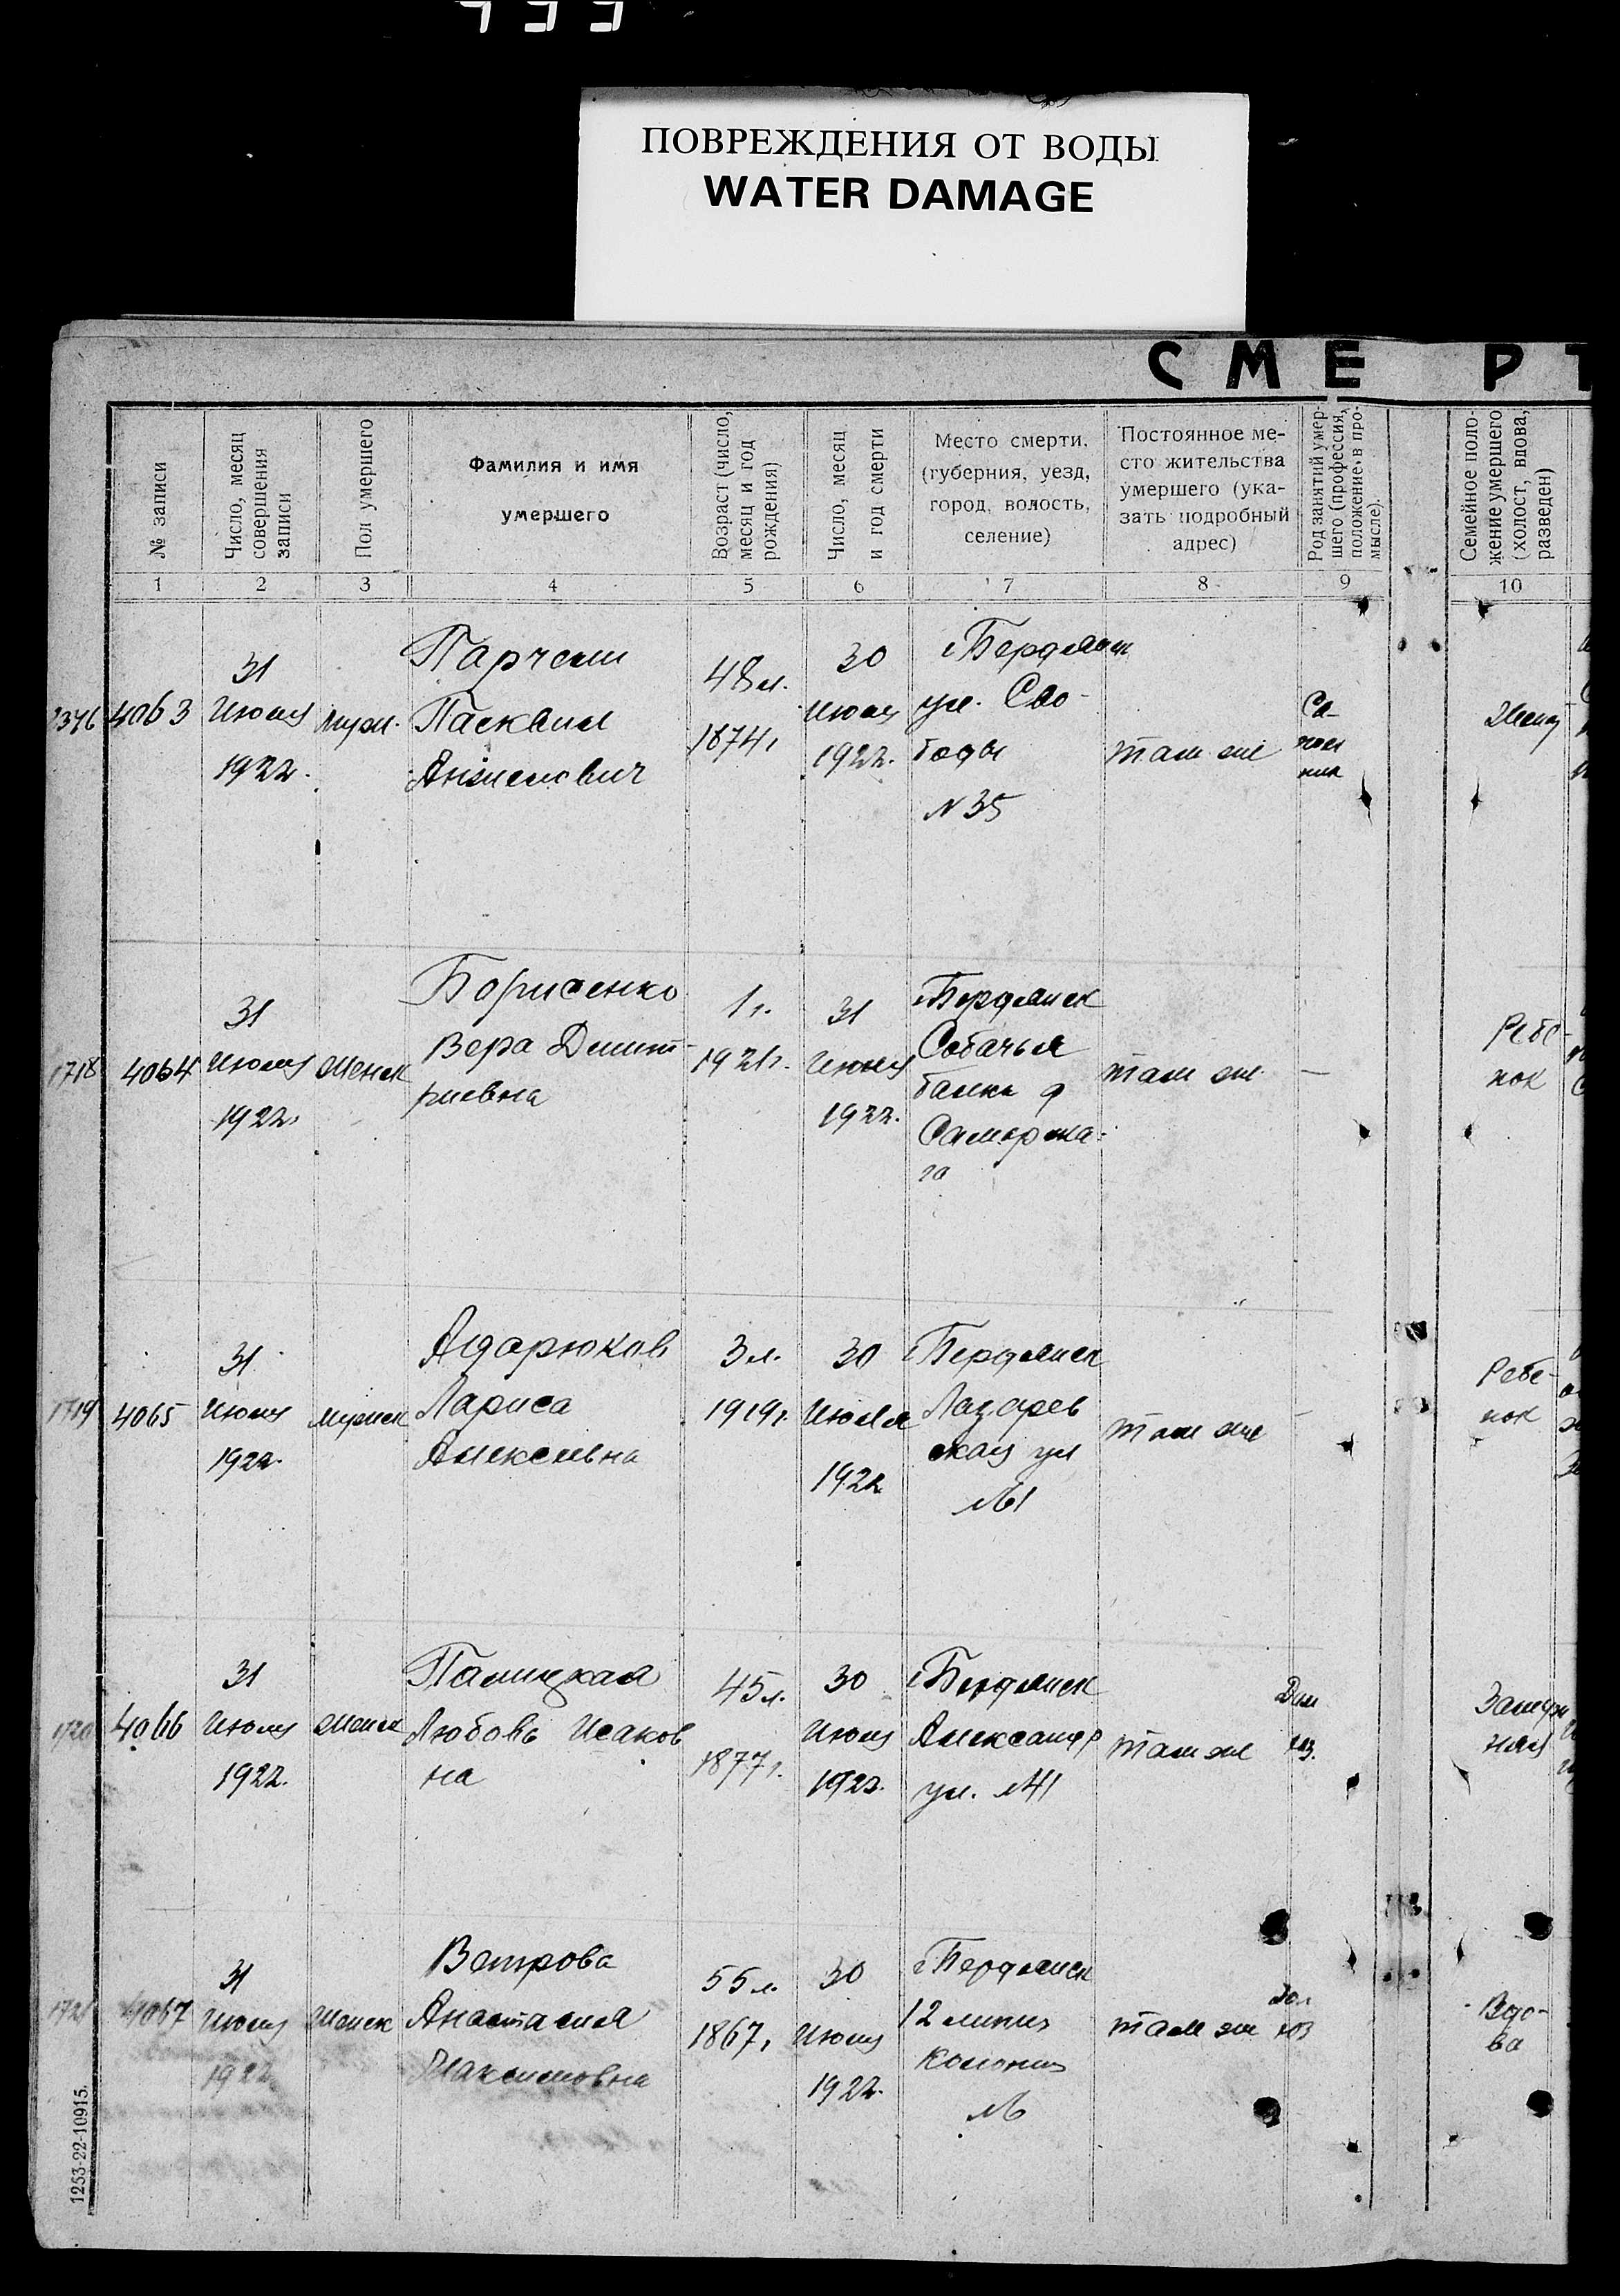 ПОВРЕЖДЕНИЯ ОТ ВОДЫ
WATER DAMAGE
СМЕРТ
№ записи
Число, месяц
совершения
записи
Пол умершего
Фамилия и имя
умершего
Возраст (число,
месяц и год
рождения)
Число, месяц
и год смерти
Место смерти.
(губерния, уезд,
город, волость,
селение)
Постоянное ме-
сто жительства
умершего (ука-
зать подробный
адрес)
Род занятий умер-
шего (профессия,
положение в про-
мысле).
Семейное поло-
жение умершего
(холост, вдова,
разведен)
1 2 3 4 5 6 7 8 9 10
4063
31
Июля
1922.
муж.
Парчели
Пасквил
Анжелович
48 л.
1874г
30
Июля
1922.
Бердянск
ул. Сво-
боды
N 35
там же
Женат
1718
4064
31
Июля
1922
Женск
Борисенко
Вера Дмит-
риевна
1 г.
1921г.
31
Июля
1922.
Бердянск
Собачья
балка д
там же
—
Ребе-
нок
1719
4065
31
Июля
1922.
мужск
Адарюков
Лариса
Алексеевна
3 л.
1919г.
30
Июля
1922
Бердянск
Лазарев
ская ул
№1
там же
Ребе-
нок
1720
4066
31
Июля
1922.
Женск
Палицкая
Любовь Исаков
на
45 л.
1877г.
30
Июля
1922.
Бердянск
Александр
ул. №41
там же
Дом
хоз.
Замуж
няя
4067
31
Июля
1922
Женск
Ветрова
Анастасия
Максимовна
55 л.
1867г
30
Июля
1922.
Бердянск
12 линия
Колония
№
там же
хоз
Вдо-
ва
1253-22-10915.